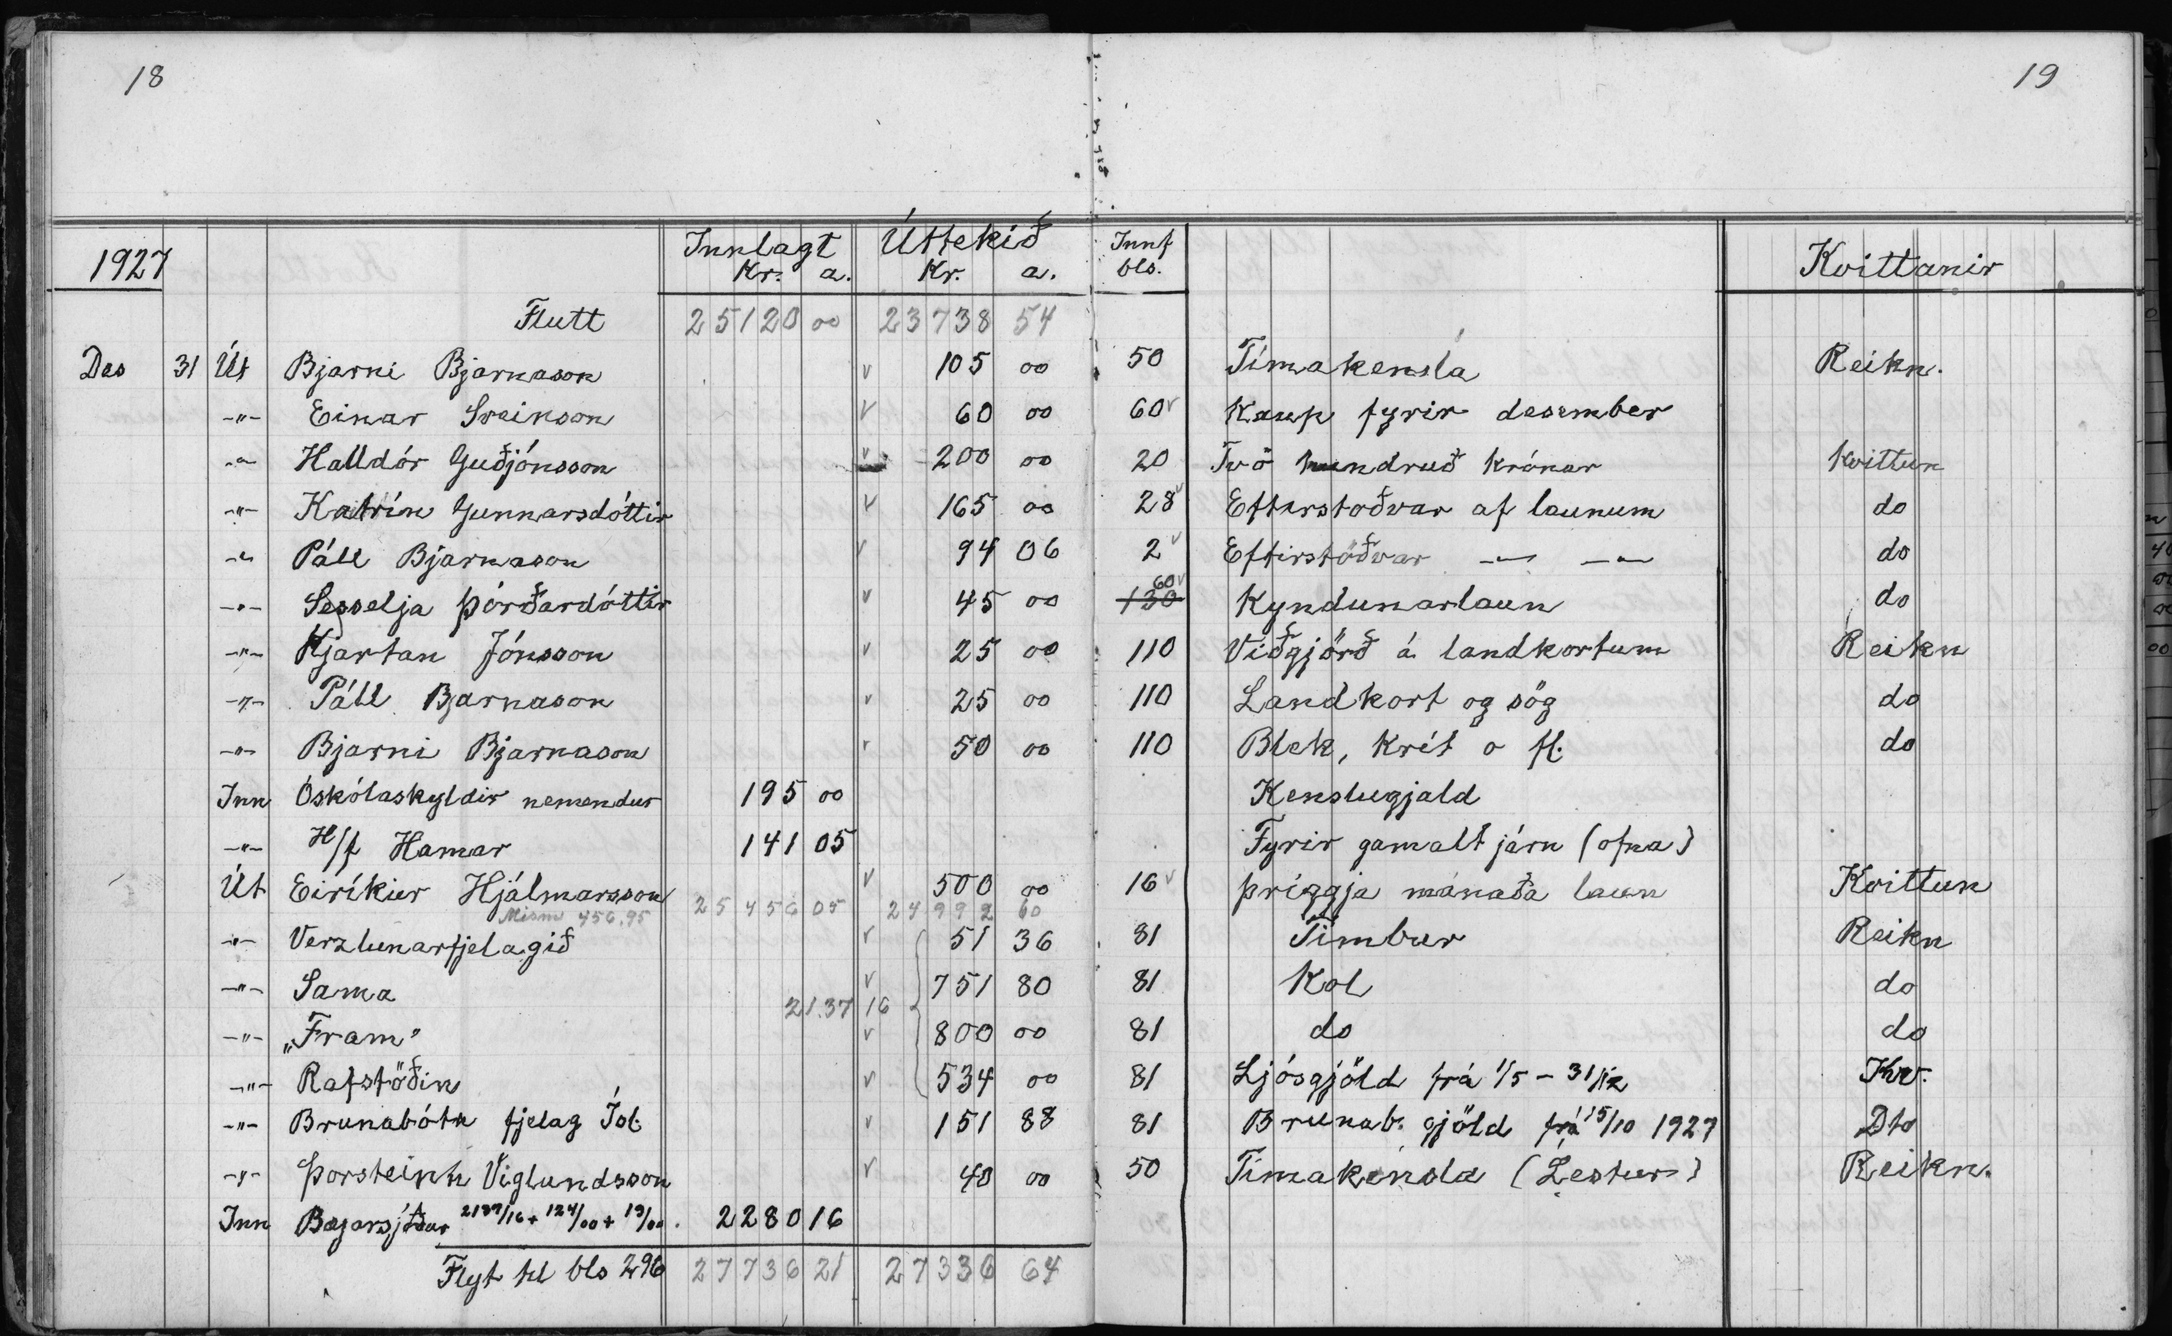 18
19
1927 Innlagt Úttekið Innf Kvittanir
Kr. a. Kr. a. bls.
Flutt 25120 00 23738 54
Des 31 Út Bjarni Bjarnason v 105 00 50 Tímakensla Reikn.
-"- Einar Sveinson v 60 00 60 v Kaup fyrir desember
-"- Halldór Guðjónsson v 200 00 20 Tvö hundruð krónar Kvittun
-"- Katrín Gunnarsdóttir v 165 00 28 v Eftirstöðvar af launum do
-"- Páll Bjarnason v 94 06 2 v Eftirstöðvar -"- -"- do
-"- Sesselja Þórðardóttir v 45 00 130 60 v Kyndunarlaun do
-"- Kjartan Jónsson v 25 00 110 Viðgjörð á landkortum Reikn
-"- Páll Bjarnason v 25 00 110 Landkort og sög do
-"- Bjarni Bjarnason v 50 00 110 Blek, krít o fl. do
Inn Óskólaskyldir nemendur 195 00 Kenslugjald
-"- H/f Hamar 141 05 Fyrir gamalt járn (ofna)
Út Eiríkur Hjálmarsson v 500 00 16 v Þriggja mánaða laun Kvittun
Mism 456.95 25456 05 24992 60
-"- Verzlunarfjelagið v 51 36 81 Timbur Reikn
-"- Sama v 751 80 81 Kol do
2137 16
-"- "Fram" v 800 00 81 do do
-"- Rafstöðin v 534 00 81 Ljósgjöld frá 1/5 - 31/12 Kv.
-"- Brunabóta fjelag Ísl. v 151 88 81 Brunab. gjöld frá 15/10 1927 Dto
-"- Þorsteinn Víglundsson v 40 00 50 Tímakensla (Lestur) Reikn.
Inn Bæjarsjóður 2137/16 + 124/00 + 19/00. 2280 16
Flyt til bls 296 27736 21 27336 64